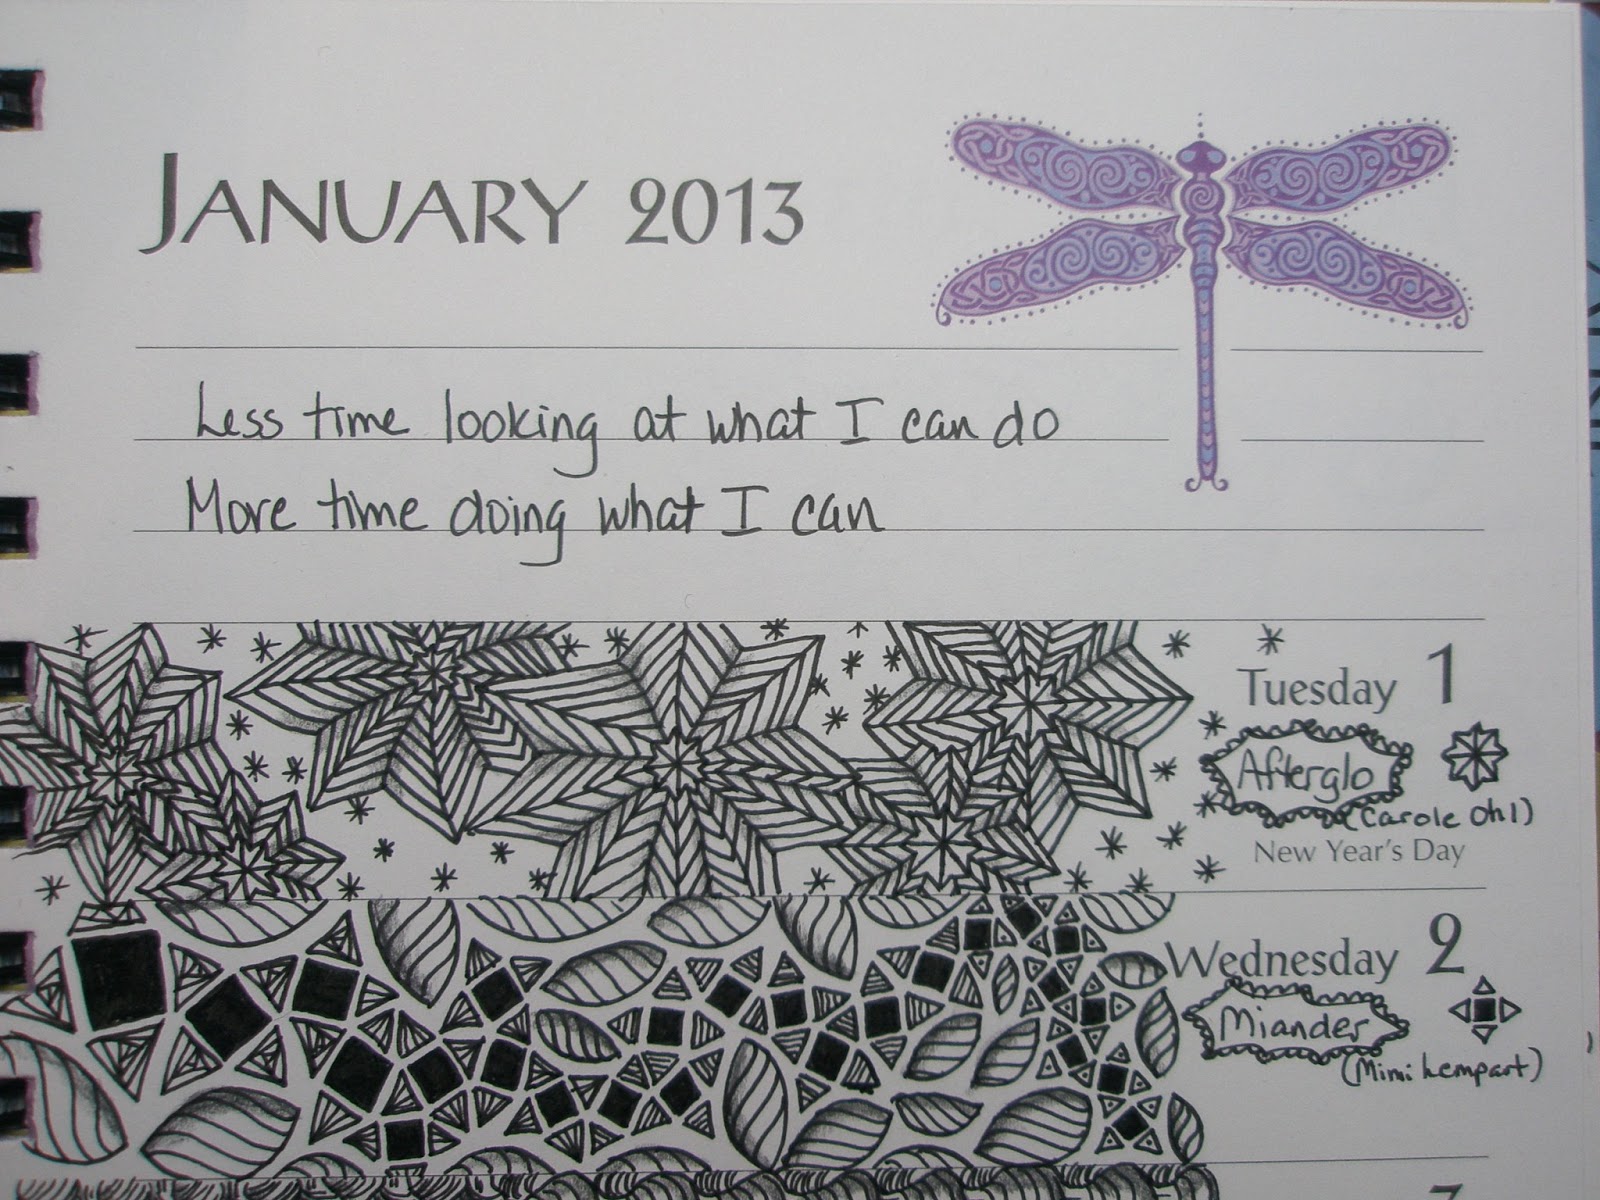 JANUARY 2013
Less time looking at what I can do
More time doing what I can
Tuesday 1
Afterglo
(Carole Ohl)
New Year's Day
Wednesday 2
Miander
(Mimi Lempart)